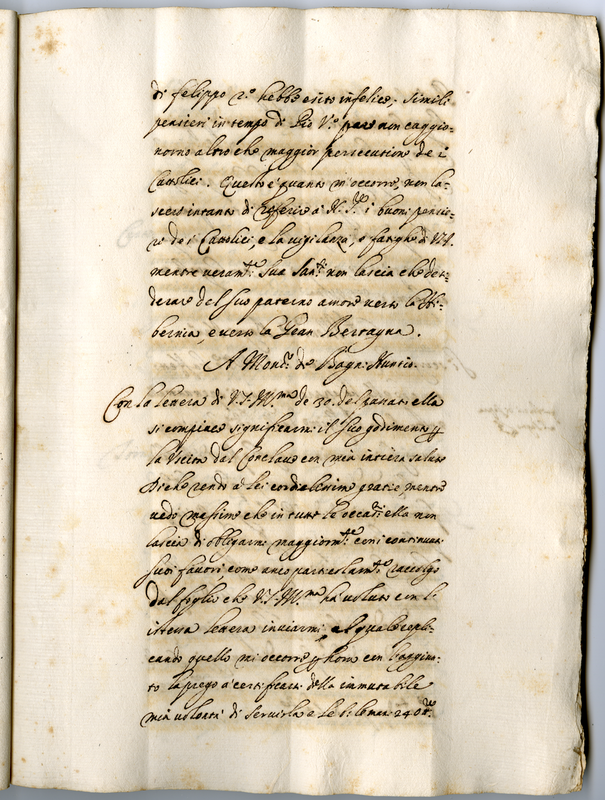 di filippo 2.º hebbe esito infelice. Simili
pensieri in tempo di Pio V.º non caggio-
norno altro che maggior persecutione de i
Cattolici. Questo è quanto m'occorre, non la-
scero intanto di referire à N. S.re i buoni pensie-
ri de i Cattolici, e la vigilanza, e fatighe di V.S.
mentre veram.te Sua San.tà non lascia che desi-
derare del suo paterno amore verso la Hi-
bernia, e verso la Gran Bertagna.
A Mons.r de Bagni Nuntio.
Con la lettera di V.S. Ill.ma de 30. del ella
si compiace significarmi il suo godimento p
la Uscita dal Conclave con mia intiera salute
Di che rendo a lei cordialissime gratie, mentre
vedo massime che in tutte le occati.ni ella non
lascia di obligarmi maggiorm.te con i continuati
suoi favori, come anco particolarm.te raccolgo
dal foglio che V.S. Ill.ma ha voluto con l'
istessa lettera inviarmi, al quale repli-
cando quello mi occorre p hora con l'aggiun-
to la prego a certificarsi della immutabile
mia volontà di servirla e le b. le mani 24